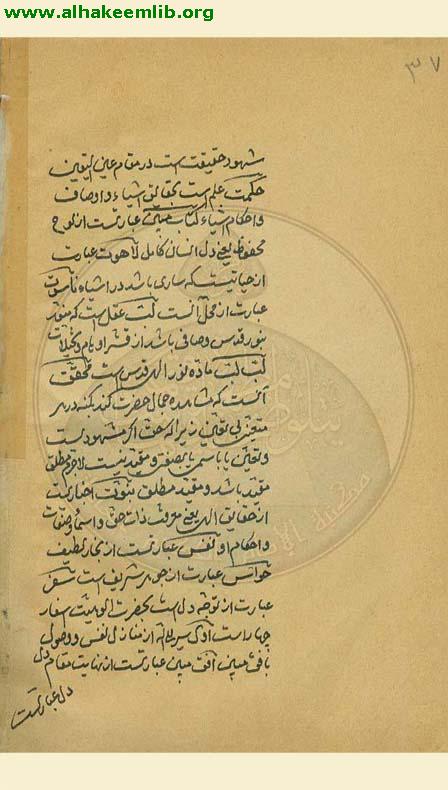 www.alhakeemlib.org
۳۷
شهود حقیقت است در مقام عین الیقین
حکمت علم است بحقایق اشیاء و اوصاف
و احکام اشیاء کتاب مبین عبارتست از لوح
محفوظ یعنی دل انسان کامل لاهوت عبارت
از حیاتیست که ساری باشد در اشیاء ناسوت
عبارت از محل آنست لب عقل است که منور
بنور قدس و صافی باشد از قشر اوهام و تخیلات
لب لب ماده نور الهی قدس است محقق
آنست که مشاهده جمال حضرت کند که در هر
متعین بی تعین زیرا که حق اگر مشهود است
و تعین با باسم یا بصفة و مقید نیست لاجرم مطلق
مقید باشد و مقید مطلق نبوت اخبار است
از حقایق الهی یعنی معرفت ذات حق و اسماء و صفات
و احکام او نفس عبارتست از بخار لطیف
حواس عبارت از جوهر شریف است سفر
عبارت از توجه دل است بحضرت الوهیت اسفار
چهار است اول سیر الی الله از منازل نفس و وصول
بافق مبین افق مبین عبارتست از نهایت مقام دل
دل عبارتست